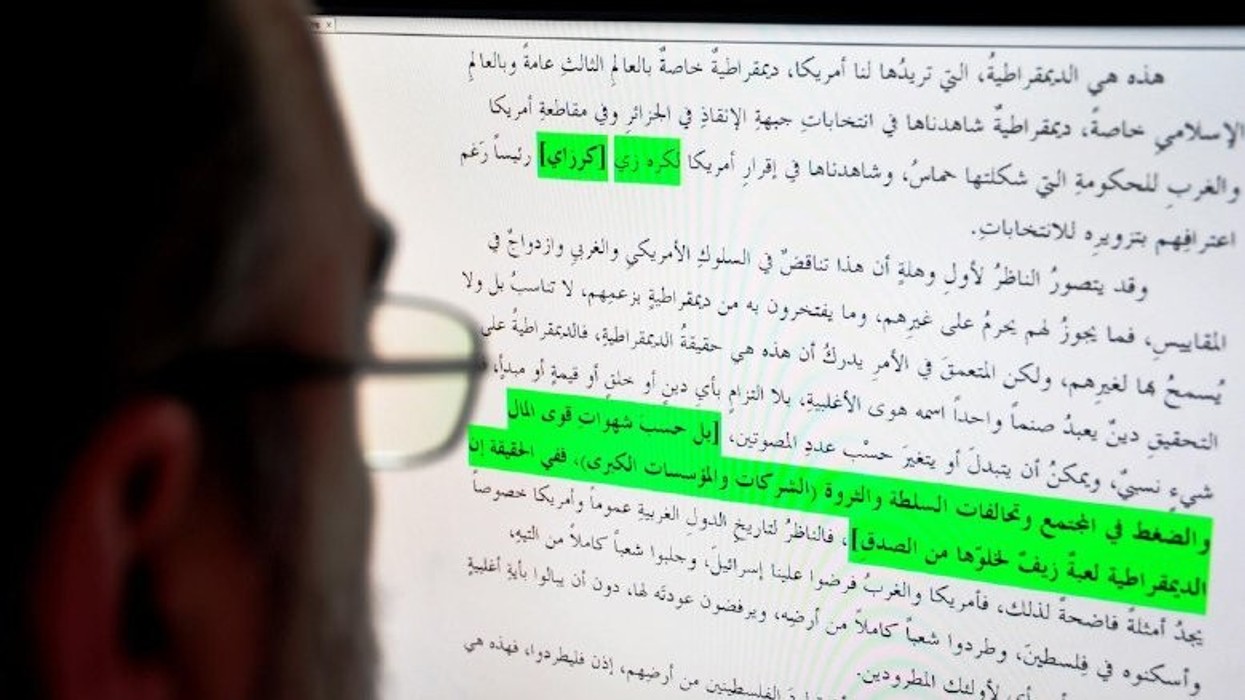 هذه هي الديمقراطيةُ، التي تريدُها لنا أمريكا، ديمقراطيةٌ خاصةٌ بالعالمِ الثالثِ عامةً وبالعالمِ
الإسلامي خاصةً، ديمقراطيةٌ شاهدناها في انتخاباتِ جبهةِ الإنقاذِ في الجزائرِ وفي مقاطعةِ أمريكا
والغربِ للحكومةِ التي شكلتها حماسُ، وشاهدناها في إقرارِ أمريكا لكره زي [كرزاي] رئيساً رَغم
اعترافِهم بتزويرِه للانتخاباتِ.
وقد يتصورُ الناظرُ لأولِ وهلةٍ أن هذا تناقضٌ في السلوكِ الأمريكي والغربي وازدواجٌ في
المقاييسِ، فما يجوزُ لهم يحرمُ على غيرِهم، وما يفتخرون به من ديمقراطيةٍ بزعمِهم، لا تناسبُ بل ولا
يُسمحُ بها لغيرِهم، ولكن المتعمقَ في الأمرِ يدركُ أن هذه هي حقيقةُ الديمقراطيةِ، فالديمقراطيةُ على
التحقيقِ دينٌ يعبدُ صنماً واحداً اسمه هوى الأغلبيةِ، بلا التزامٍ بأي دينٍ أو خلقٍ أو قيمةٍ أو مبدأٍ،
شيءٍ نسبيٌ، ويمكنُ أن يتبدلَ أو يتغيرَ حسْب عددِ المصوتين، [بل حسبَ شهواتِ قوى المال
والضغط في المجتمع وتحالفات السلطة والثروة (الشركات والمؤسسات الكبرى)، ففي الحقيقة إن
الديمقراطية لعبةٌ زيفٌ لخلوّها من الصدقِ]، فالناظرُ لتاريخِ الدولِ الغربيةِ عموماً وأمريكا خصوصاً
يجدُ أمثلةً فاضحةً لذلك، فأمريكا والغربُ فرضوا علينا إسرائيلَ، وجلبوا شعباً كاملاً من التيهِ،
وأسكنوه في فِلسطينَ، وطردوا شعباً كاملاً من أرضِه، ويرفضون عودتَه لها، دون أن يبالوا بأيةِ أغلبيةٍ
لأولئك المطرودين.
الفلسطينيين من أرضِهم، إذن فليطردوا، فهذه هي